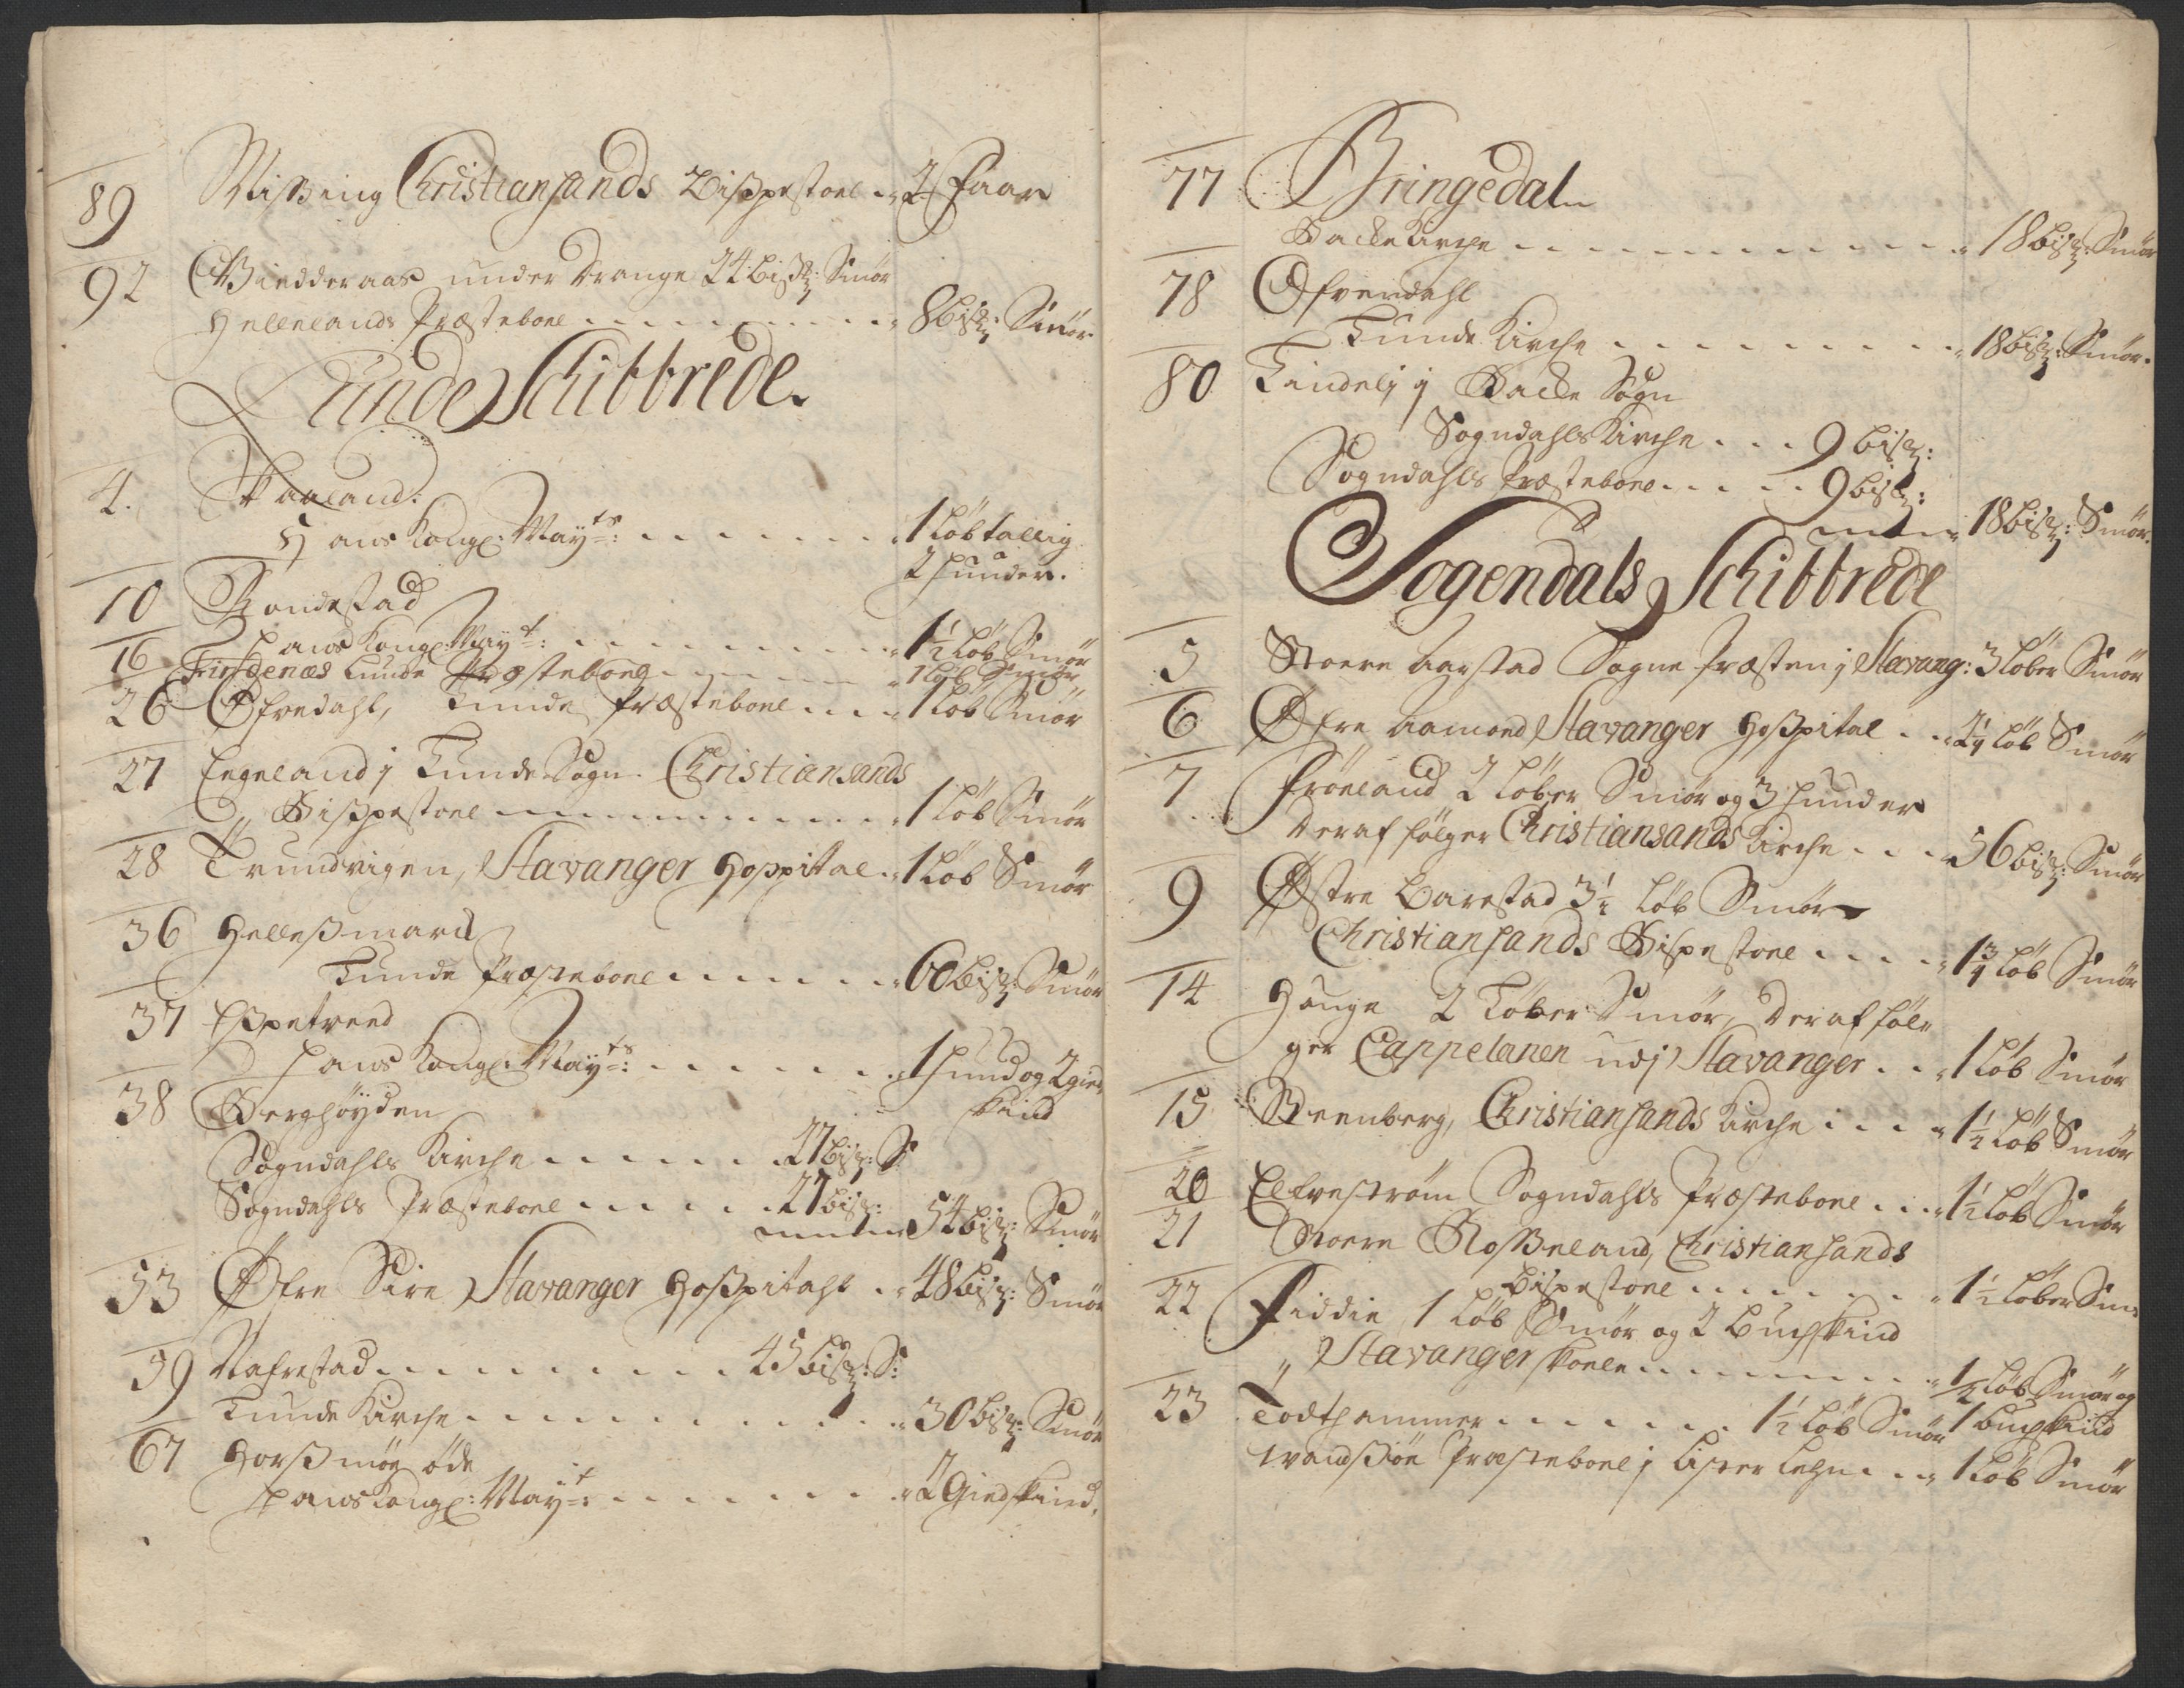 89 Missing Christiansands Bispestoel 2 Faar
92 Giedderaas under Drange 24 bis: Smör
Hellelands Præstebole 8 bis: Smör
Lunde Schibbrede.
4. Skaaland:
Hans Kongl: Mayts: 1 Löb tallig
2 huuder.
10 Rondestad
Hans Kongl: Mayt: 1½ Löb Smör
16 Findenæs Lunde Præstebole 1 Löb Smör
26 Ofredahl, Lunde Præstebole 1 Löb Smör
27 Egeland j Lunde Sogn. Christiansands
Bispestoel 1 Löb Smör
28 Trundvigen, Stavanger Hospital 1 Löb Smör
36 Hellesmarck
Lunde Præstebole 60 bis: Smör
37 Espetved
Hans Kongl: Mayts: 1 huud og 2 gied
skind
38 Berghöyden
Sogndahls Kirche 27 bis: S
Sogndahls Præstebole 27 bis:
54 bis: Smör
53 Øfre Sire Stavanger Hospitahl 48 bis: Smör
59 Nafrestad 45 bis: S:
Lunde Kirche 30 bis: Smör
67 Horsmöe øde
Hans Kongl: Mayt: 2 Giedskind.
77 Bringedal
Backe Kirche 18 bis: Smör
78 Ofverdahl
Lunde Kirche 18 bis: Smör.
80 Lindelj j Backe Sogn
Sogndahls Kirche 9 bis:
Sogndahls Præstebole 9 bis:
18 bis: Smör.
Sogendals Schibbrede
5 Noere Aarstad Sogne Præsten j Stavang: 3 Löber Smör
6 Øfre Aamoed Stavanger Hospital 2¼ Löb Smör
7 Fröeland 2 Löber Smör og 3 huuder
Deraf fölger Christiansands Kirche 56 bis: Smör
9 Østre Barstad 3½ Löb Smör
Christiansands Bispestoel 1¾ Löb Smör
14 Houge 2 Löber Smör, Deraf föl
ger Cappelanen udj Stavanger 1 Löb Smör
15 Steenberg, Christiansands Kirche 1½ Löb Smör
20 Elvestrøm Sogndahls Præstebole 1½ Löb Smör
21 Noere Rosseland, Christiansands
Bispestoel 1½ Löber Smör
22 Fiddie 1 Löb Smör og 2 Buchskind
Stavanger skoele ½ Löb Smör og
23 Todthammer 1½ Löb Smör 1 Buchskind
Wandsiöe Præstebole j Lister Lehn 1 Löb Smör